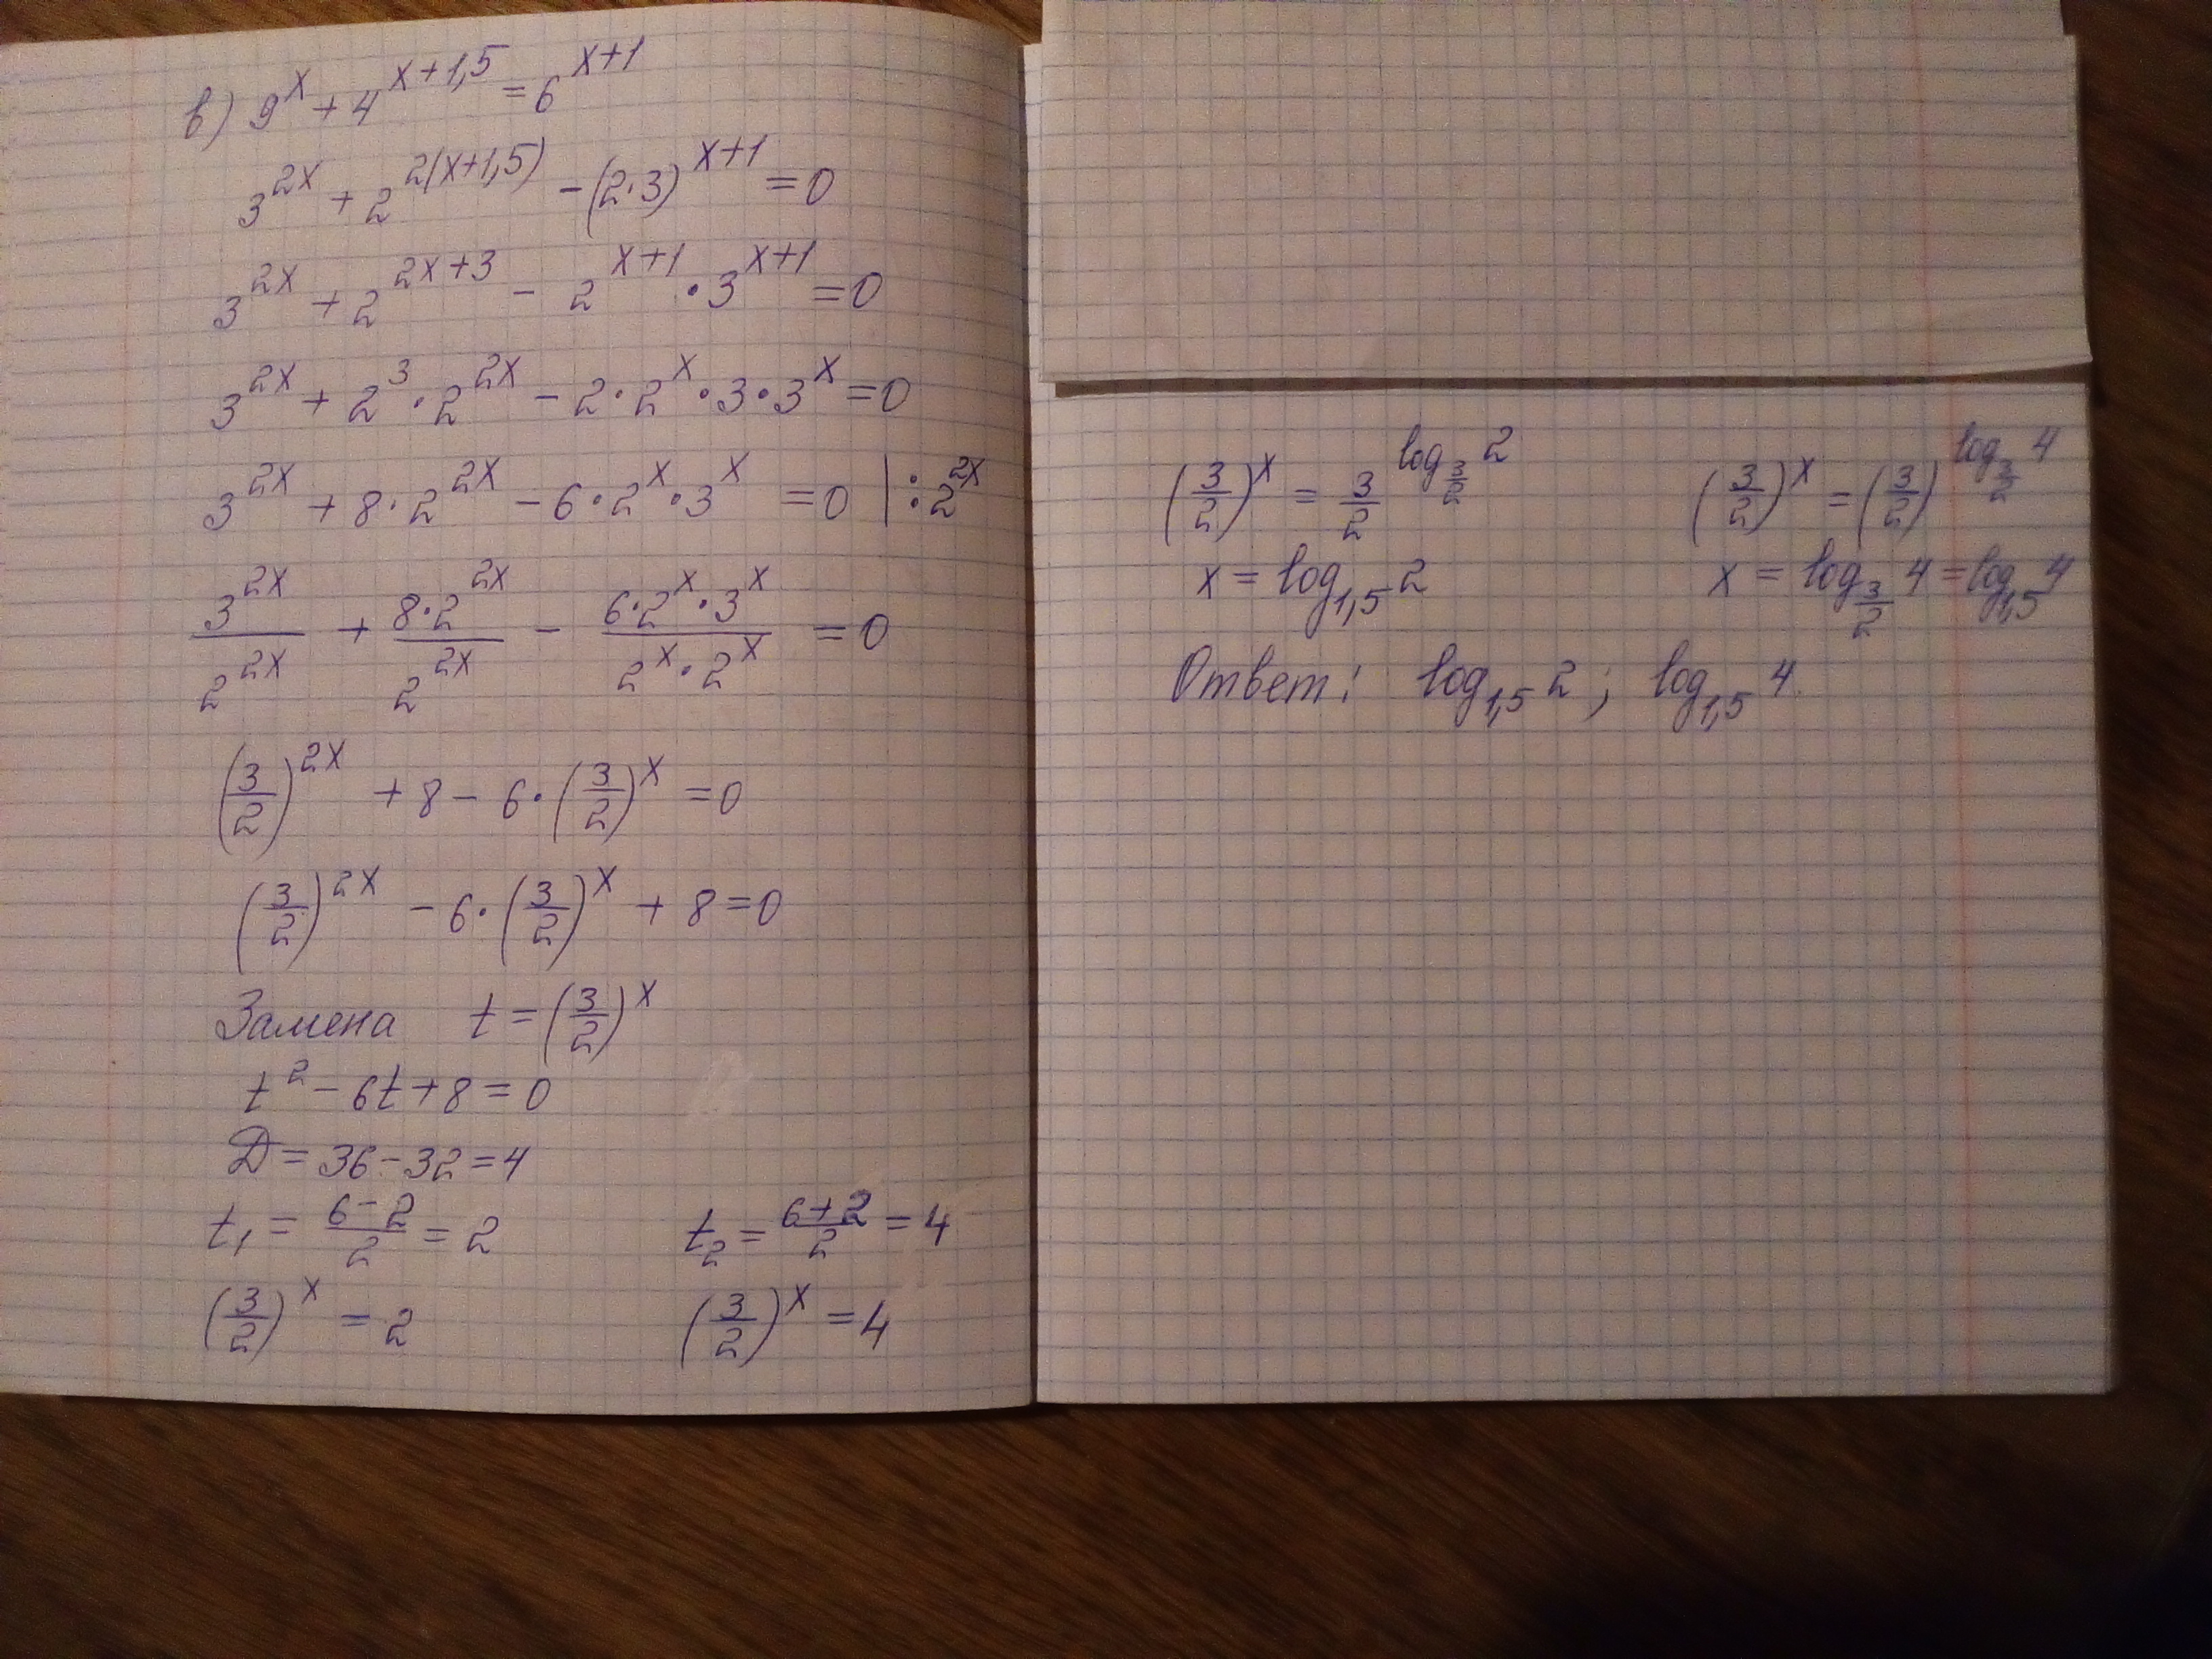 в) 9^x + 4^(x+1,5) = 6^(x+1)
3^(2x) + 2^(2(x+1,5)) - (2·3)^(x+1) = 0
3^(2x) + 2^(2x+3) - 2^(x+1) · 3^(x+1) = 0
3^(2x) + 2^3 · 2^(2x) - 2 · 2^x · 3 · 3^x = 0
3^(2x) + 8 · 2^(2x) - 6 · 2^x · 3^x = 0 | : 2^(2x)
3^(2x)/2^(2x) + 8·2^(2x)/2^(2x) - 6·2^x·3^x/(2^x·2^x) = 0
(3/2)^(2x) + 8 - 6 · (3/2)^x = 0
(3/2)^(2x) - 6 · (3/2)^x + 8 = 0
Замена t = (3/2)^x
t^2 - 6t + 8 = 0
D = 36 - 32 = 4
t₁ = (6-2)/2 = 2 t₂ = (6+2)/2 = 4
(3/2)^x = 2 (3/2)^x = 4
(3/2)^x = 3/2^(log_(3/2) 2) (3/2)^x = (3/2)^(log_(3/2) 4)
x = log_(1,5) 2 x = log_(3/2) 4 = log_(1,5) 4
Ответ: log_(1,5) 2; log_(1,5) 4.